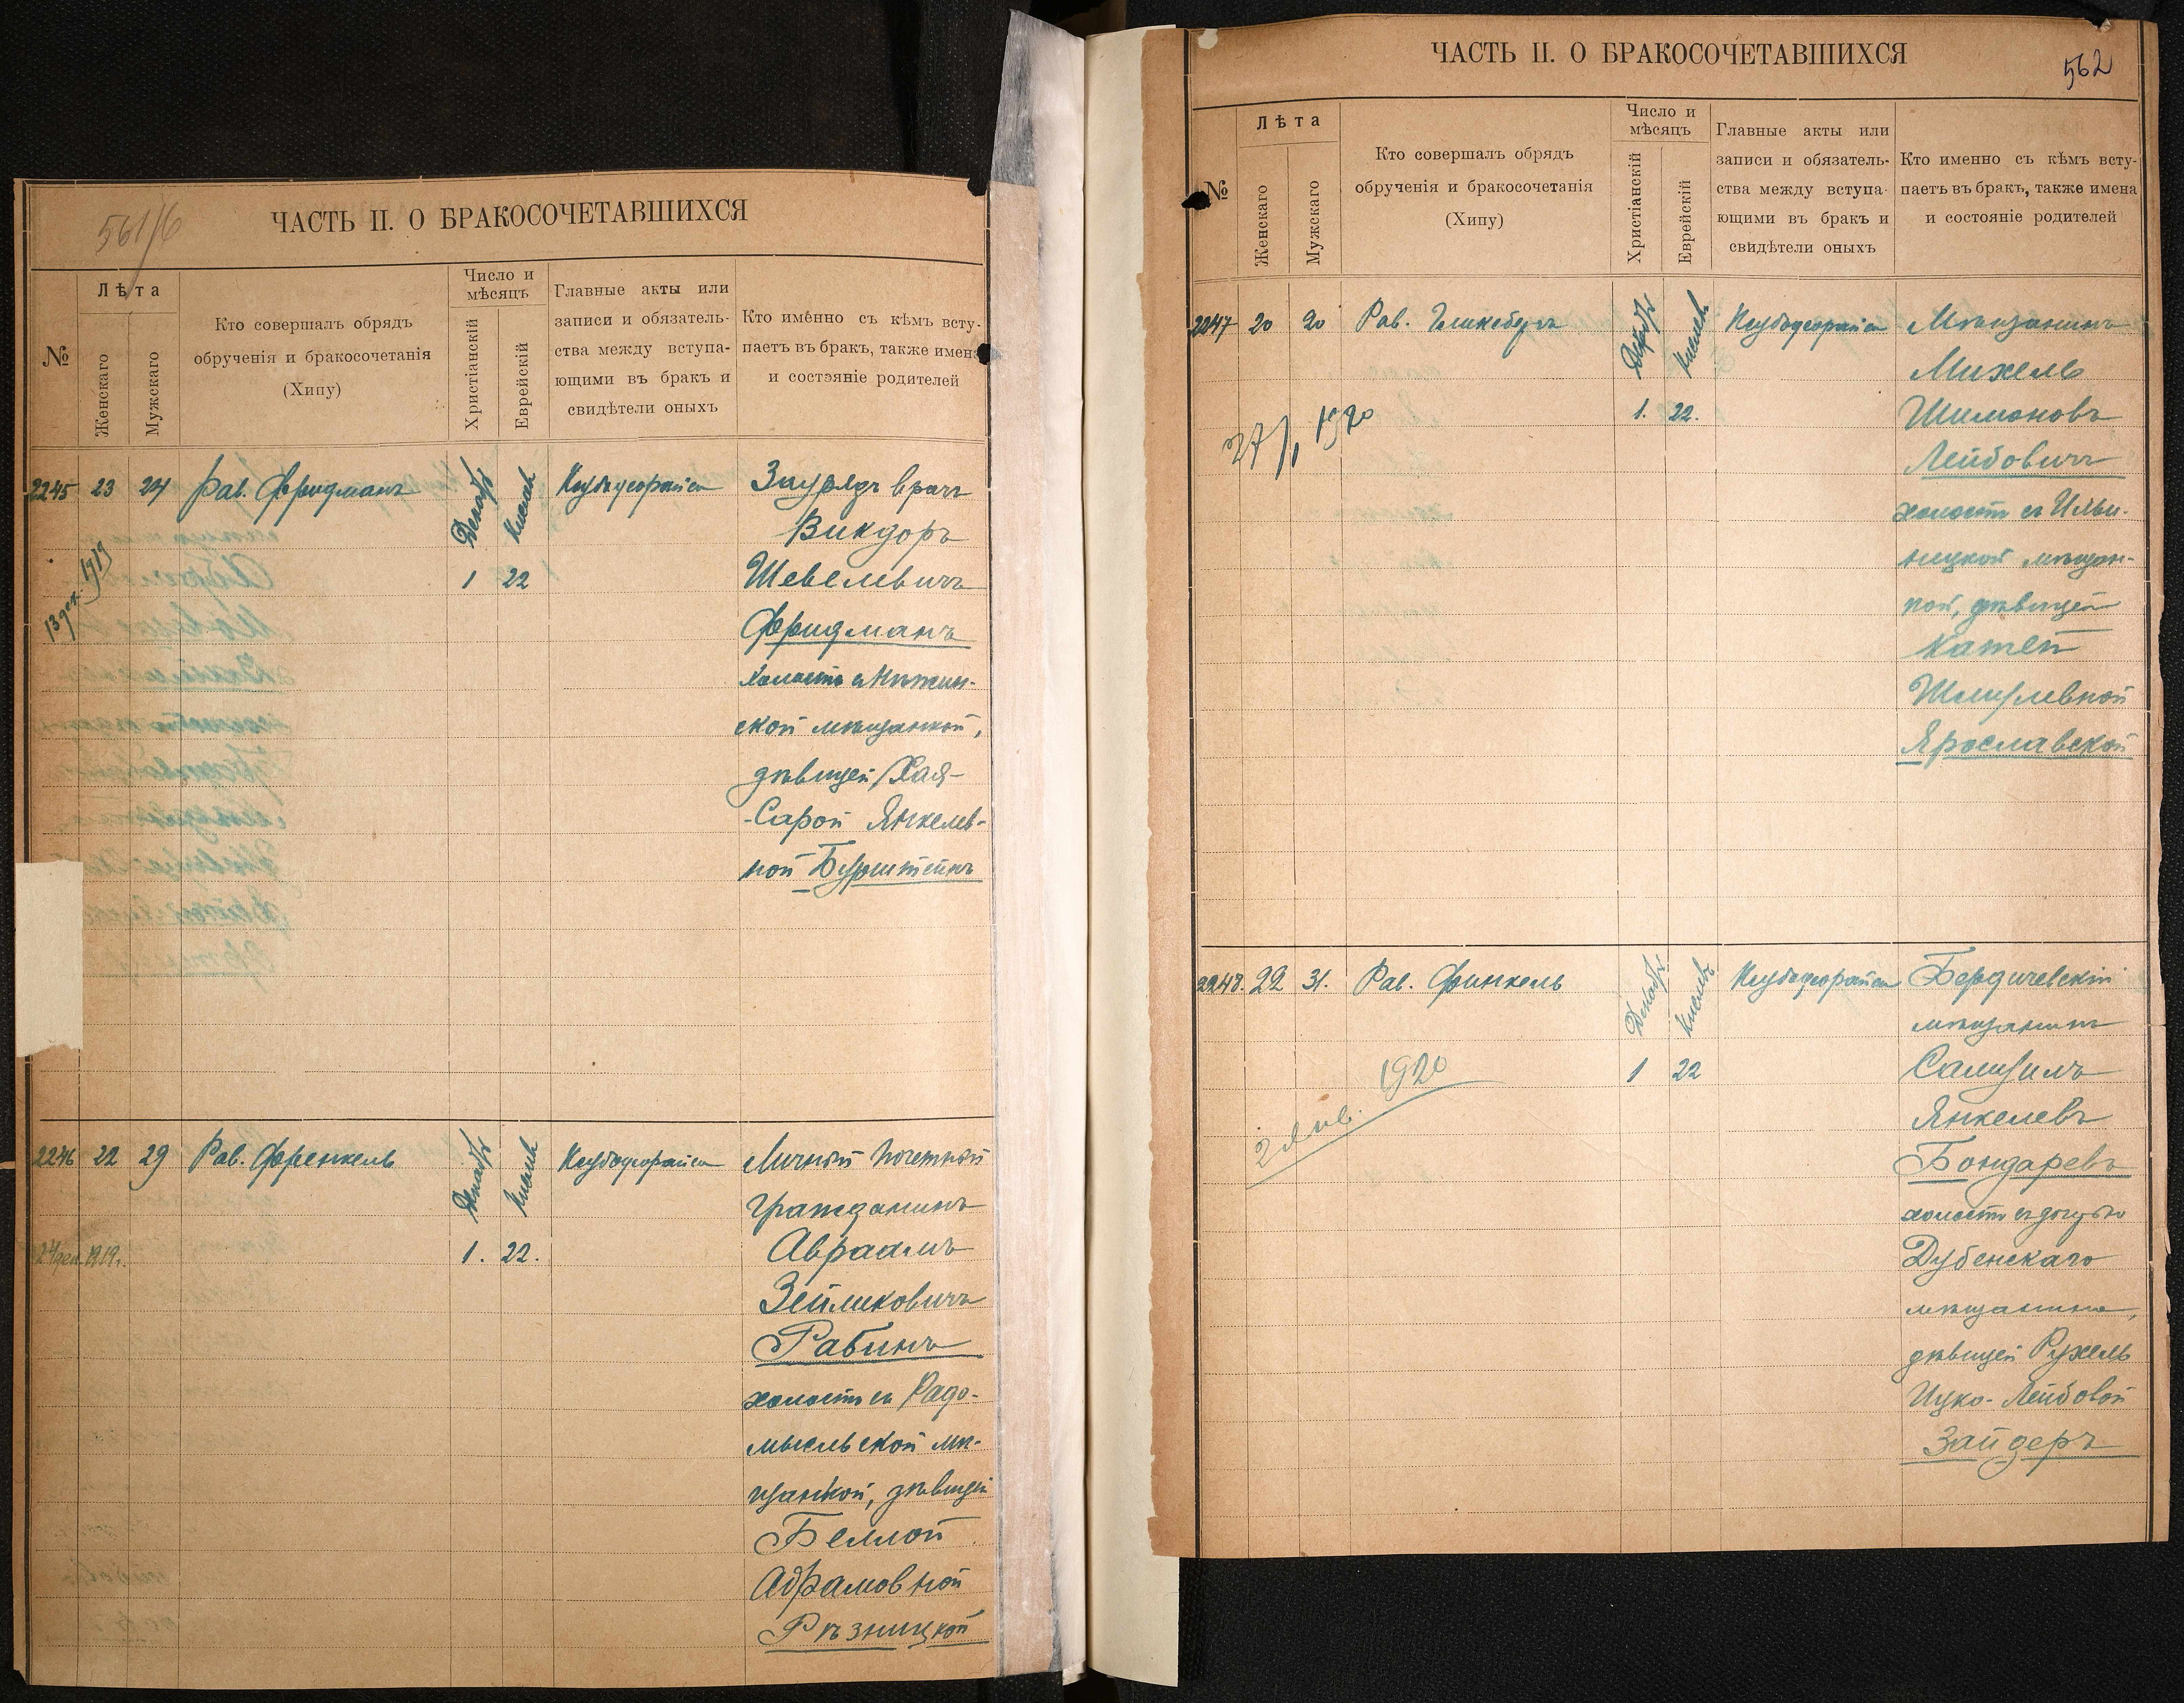 561/6
ЧАСТЬ II. О БРАКОСОЧЕТАВШИХСЯ
№
Лѣта
Женскаго
Мужскаго
Кто совершалъ обрядъ
обрученія и бракосочетанія
(Хипу)
Число и
мѣсяцъ
Христіанскій
Еврейскій
Главные акты или
записи и обязатель-
ства между вступа-
ющими въ бракъ и
свидѣтели оныхъ
Кто именно съ кѣмъ всту-
паетъ въ бракъ, также имена
и состояніе родителей
2245 23 24 Рав. Фридманъ Декабр Кислев Заурядъ врачъ
Викдоръ
13 дек. 1919
1 22 Шевелевичъ
Фридманъ
холостъ с Нѣжин-
ской мѣщанкой,
дѣвицей Хая-
-Сарой Янкелев-
ной Бурштейнъ
2246 22 29 Рав. Френкель Декабр Кислев Личный почетный
гражданинъ
24 дек. 1919г. 1. 22. Авраамъ
Зейликовичъ
Рабинъ
холостъ съ Радо-
мысльской мѣ-
щанкой, дѣвицей
Беллой
Абрамовной
Рѣзницкой
ЧАСТЬ II. О БРАКОСОЧЕТАВШИХСЯ
562
№
Лѣта
Женскаго
Мужскаго
Кто совершалъ обрядъ
обрученія и бракосочетанія
(Хипу)
Число и
мѣсяцъ
Христіанскій
Еврейскій
Главные акты или
записи и обязатель-
ства между вступа-
ющими въ бракъ и
свидѣтели оныхъ
Кто именно съ кѣмъ всту-
паетъ въ бракъ, также имена
и состояніе родителей
2247 20 20 Рав. Декабр Кислев Мѣщанинъ
Михель
27/1 1920 1. 22. Шимоновъ
Лейбовичъ
холостъ съ Ильи-
ницкой мѣщан-
кой, дѣвицей
Катей
Шмулевной
Ярославской
2248. 22 31. Рав. Финкель Декабр Кислев Бердичевскій
мѣщанинъ
2 Янв. 1920 1 22 Самуилъ
Янкелевъ
Бондаревъ
холостъ съ дочерью
Дубенскаго
мѣщанина,
дѣвицей Рухель
Ицко-Лейбовой
Зайдеръ